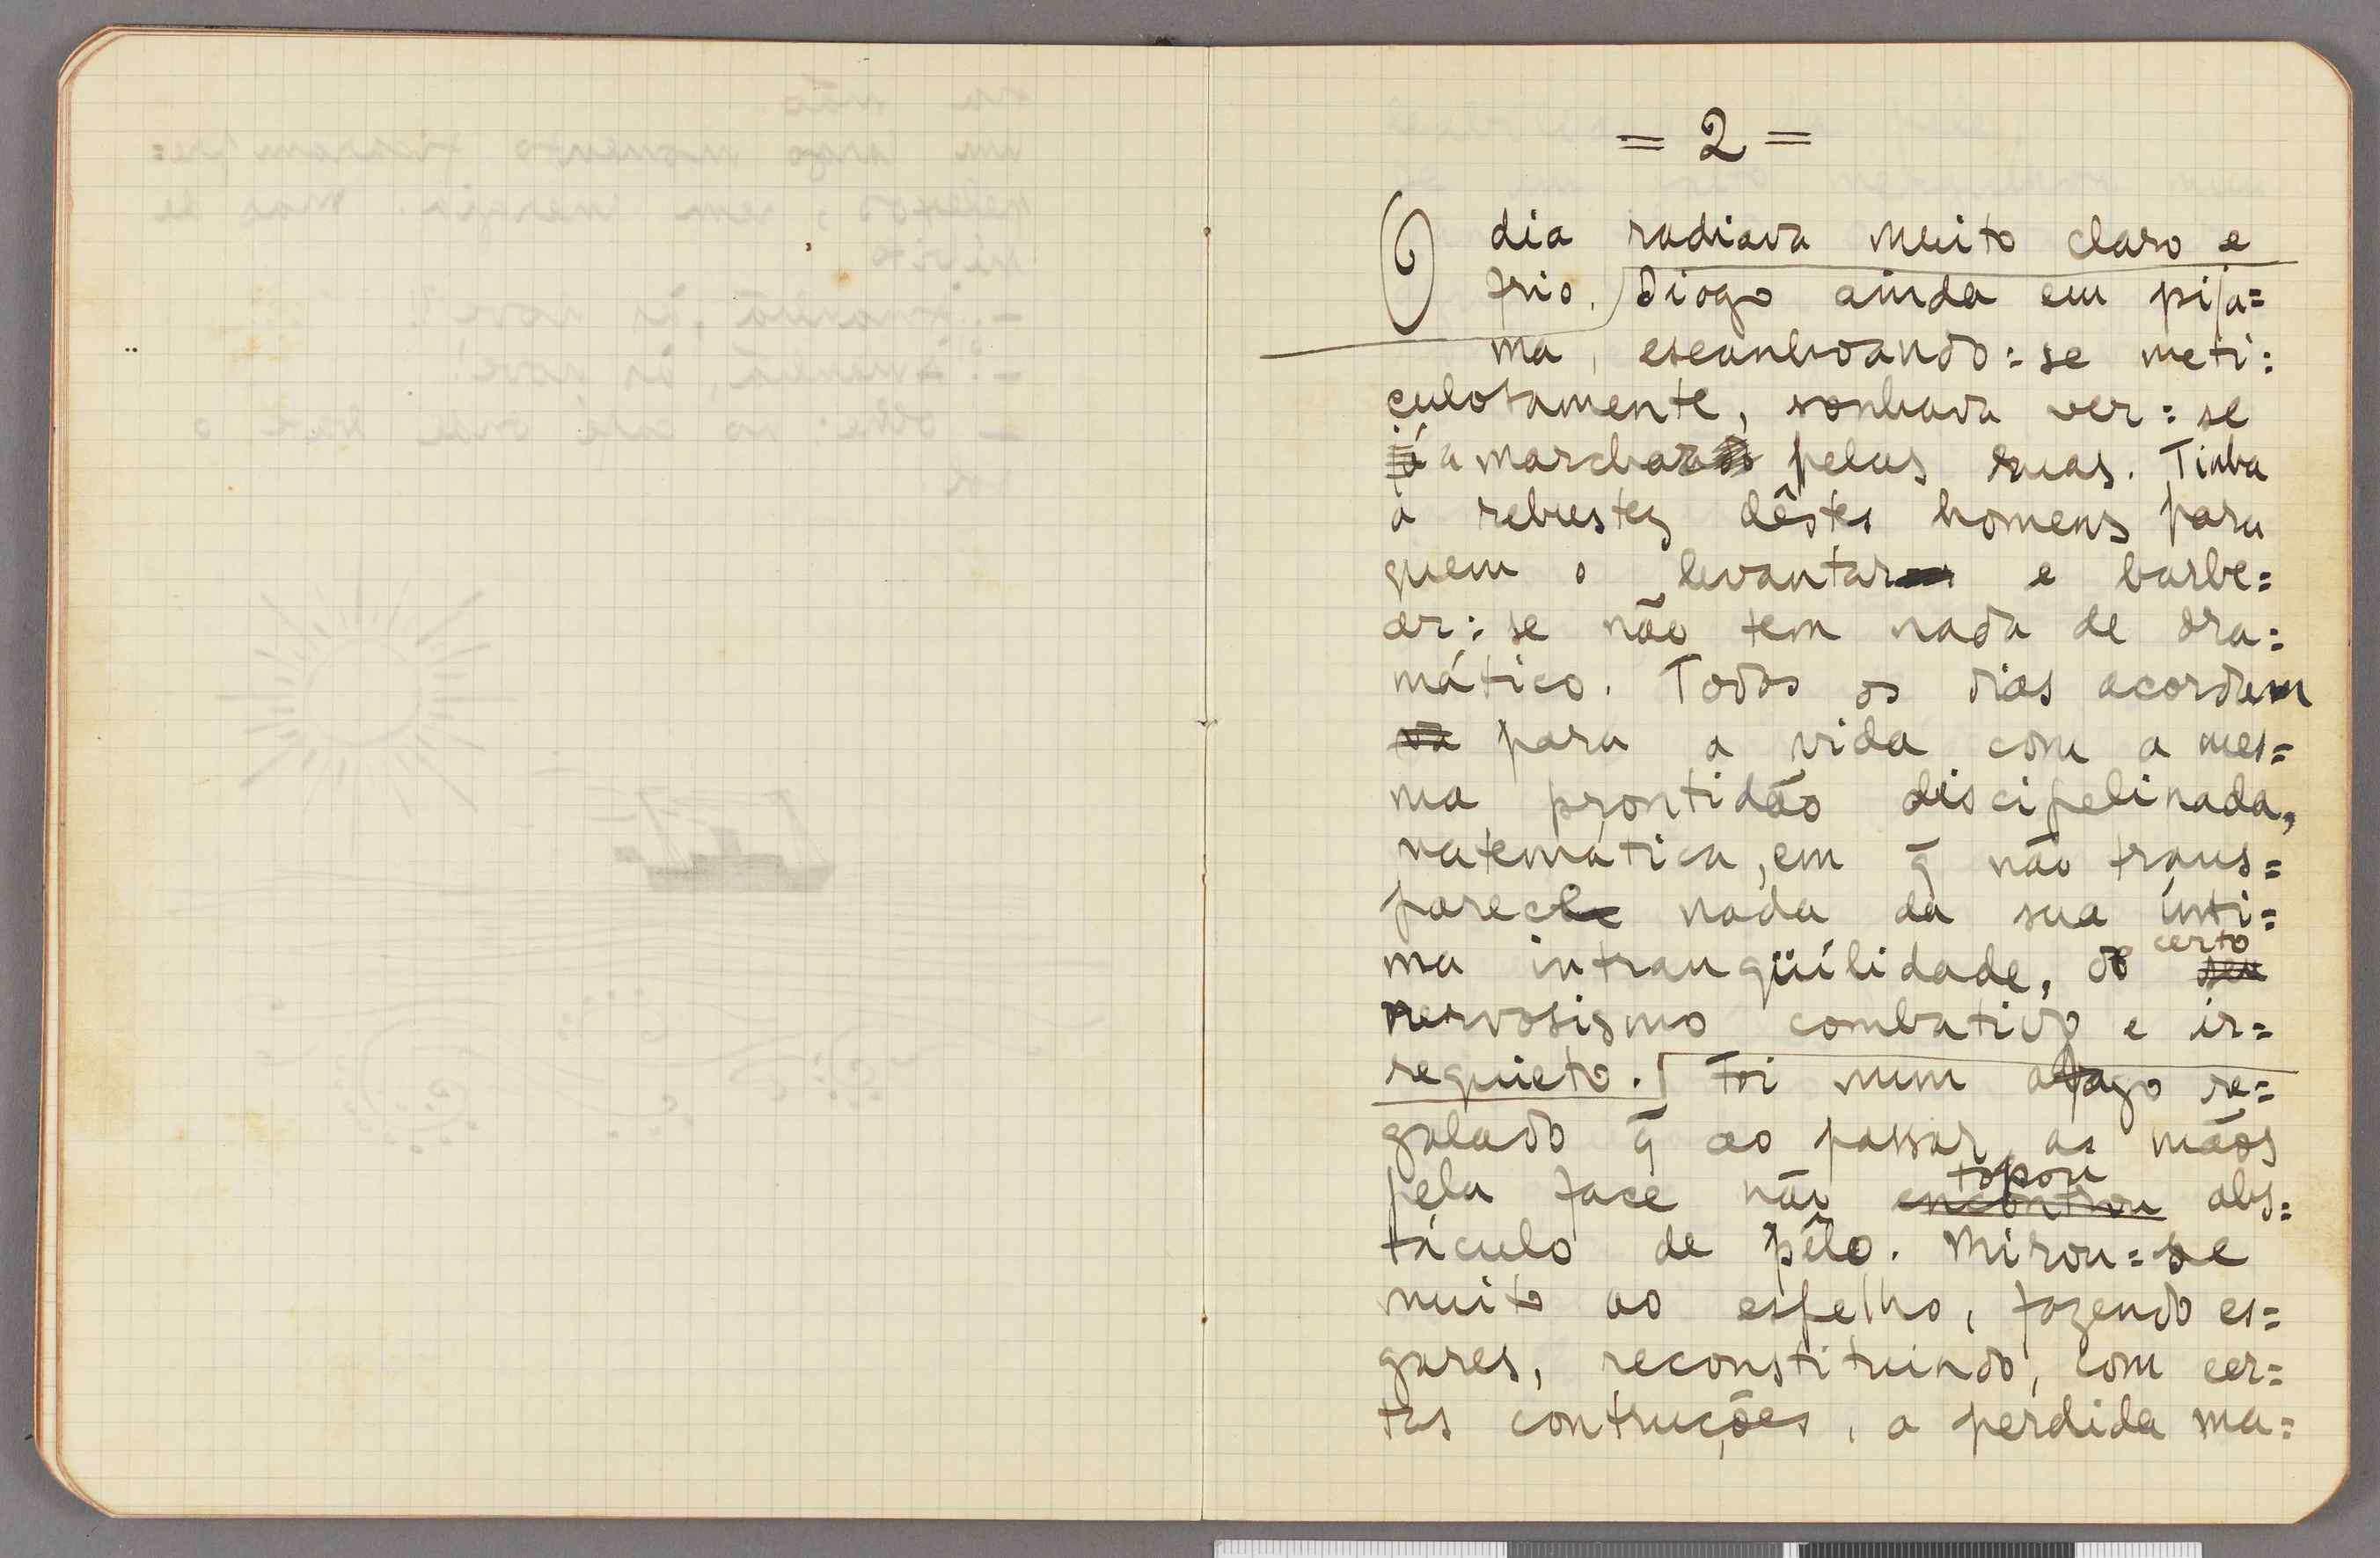 = 2 =
O dia radiava muito claro e
frio. Diogo ainda em pija=
ma, escanhoando=se meti=
culosamente, sonhava ver=se
já a marchar pelas ruas. Tinha
a rebustez dêstes homens para
quem o levantar e barbe=
ar=se não tem nada de dra=
mático. Todos os dias acordam
va para a vida com a mes=
ma prontidão discipelinada,
matemática, em q̄ não trans=
parece nada da sua ínti=
ma intranqüílidade, de certo
seu
nervosismo combativo e ir=
requieto. Foi num afago re=
galado q̄ ao passar as mãos
topou
pela face não encontrou obs=
táculo de pêlo. Mirou=se
muito ao espelho, fazendo es=
gares, reconstituindo, com cer=
tas contruções, a perdida ma=